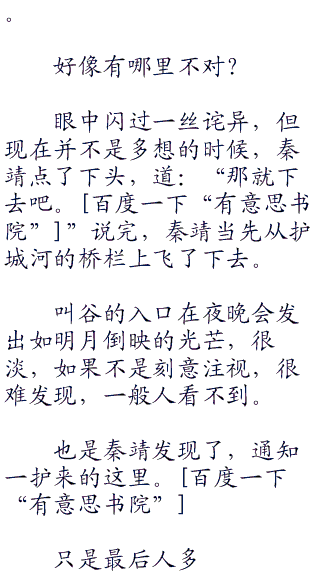 。
好像有哪里不对？
眼中闪过一丝诧异，但
现在并不是多想的时候，秦
靖点了下头，道：“那就下
去吧。[百度一下“有意思书
院”]”说完，秦靖当先从护
城河的桥栏上飞了下去。
叫谷的入口在夜晚会发
出如明月倒映的光芒，很
淡，如果不是刻意注视，很
难发现，一般人看不到。
也是秦靖发现了，通知
一护来的这里。[百度一下
“有意思书院”]
只是最后人多